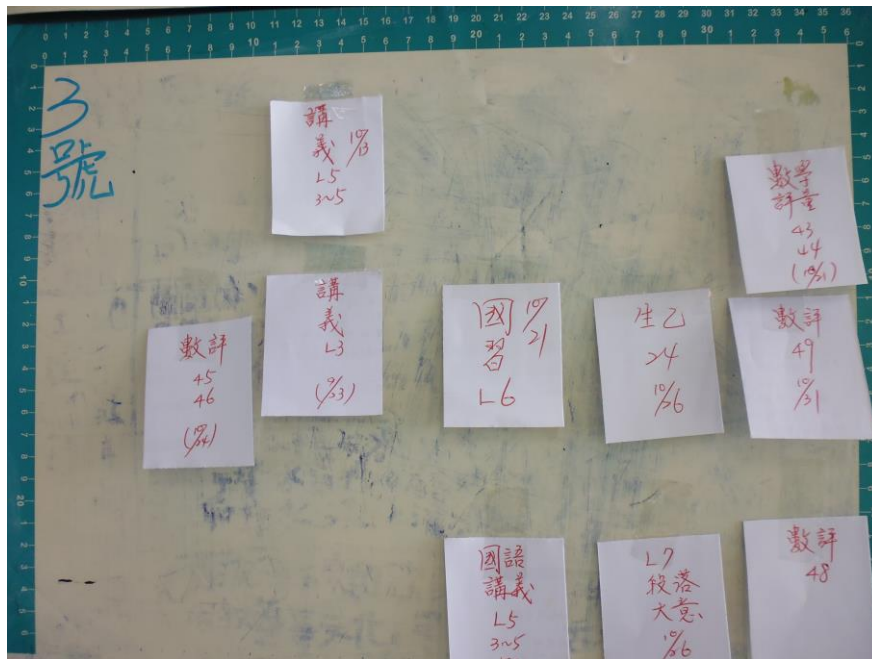 3
號
講
義 10/13
L5
3~5
數學
評量
43
44
(10/21)
數評
45
46
(10/24)
講
義
L3
國 10/21
習
L6
生乙
24
10/26
數評
49
10/31
國語
講義
L5
3~5
L7
段落
大意
10/26
數評
48